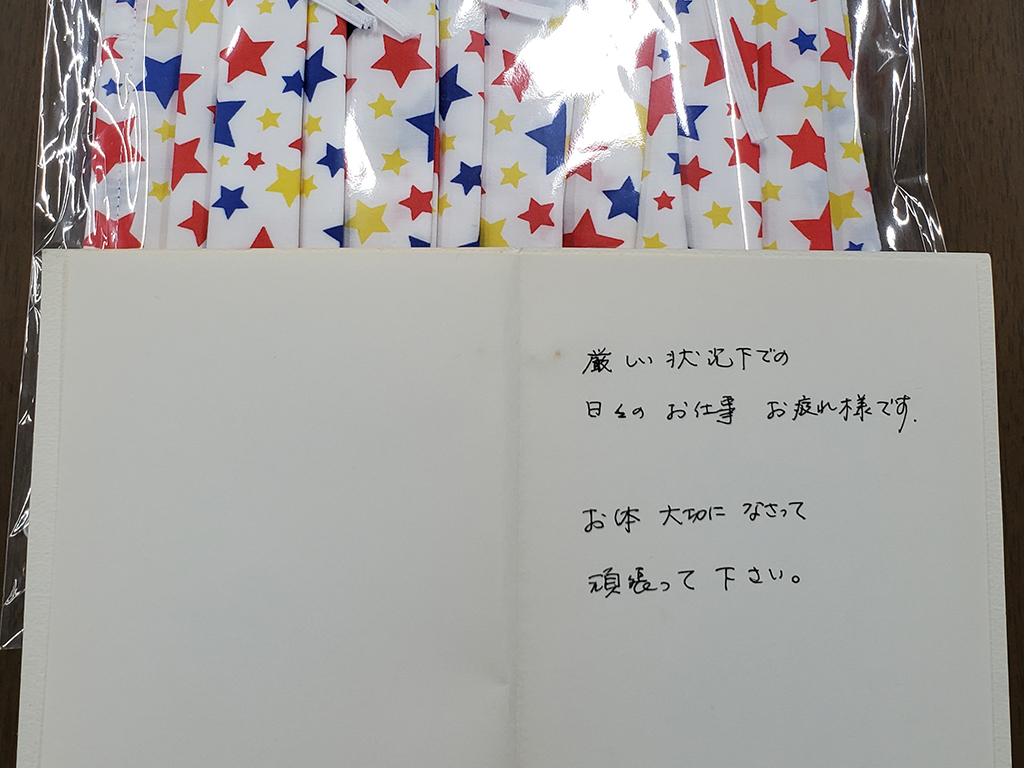 厳しい状況下での
日々のお仕事 お疲れ様です.
お体 大切に なさって
頑張って 下さい。